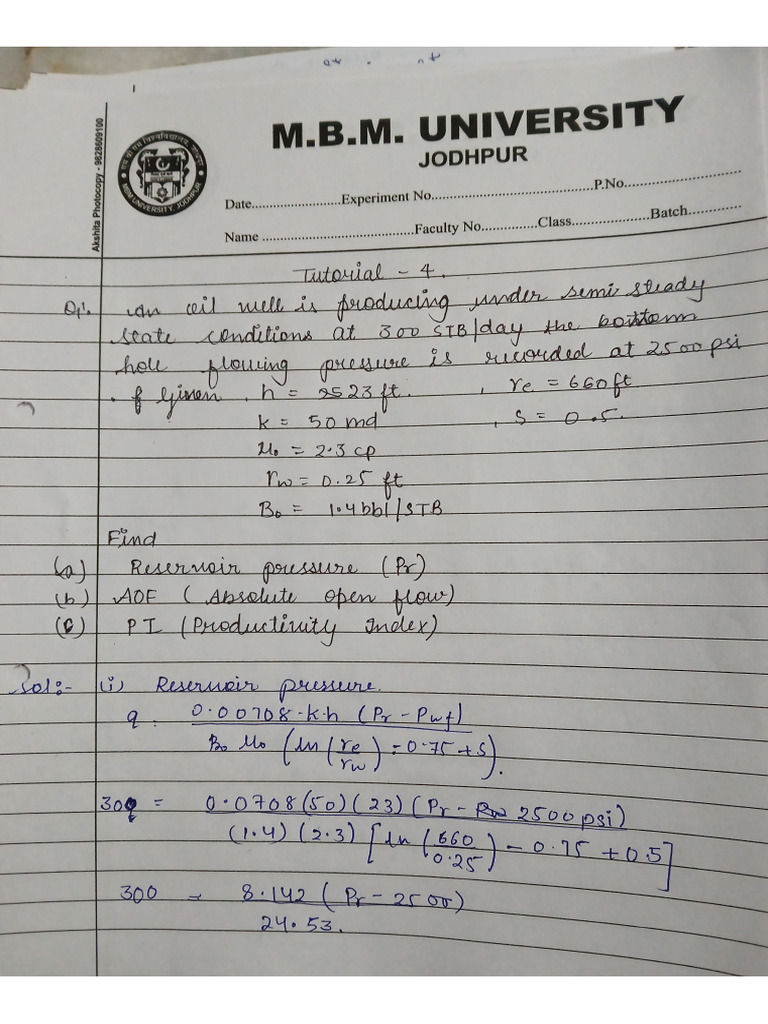 M.B.M. UNIVERSITY
JODHPUR
Akshita Photocopy - 9828609100
MBM UNIVERSITY, JODHPUR
Date.......................Experiment No..........................................P.No..............................
Name ........................................Faculty No...............Class.....................Batch..............
Tutorial - 4.
Q1. An oil well is producing under semi steady
state conditions at 300 STB/day the bottom
hole flowing pressure is recorded at 2500 psi
. Given, h = 2523 ft. , re = 660ft
k = 50 md , s = 0.5.
μo = 2.3 cp
rw = 0.25 ft
Bo = 1.4 bbl/STB
Find
(a) Reservoir pressure (Pr)
(b) AOF (Absolute open flow)
(c) PI (Productivity Index)
Sol:- (i) Reservoir pressure.
q = 0.00708·k·h (Pr - Pwf)
Bo μo (ln(re/rw) - 0.75 + s).
300 = 0.0708(50)(23)(Pr - 2500psi)
(1.4)(2.3)[ln(660/0.25) - 0.75 + 0.5]
300 = 8.142 (Pr - 2500)
24.53.